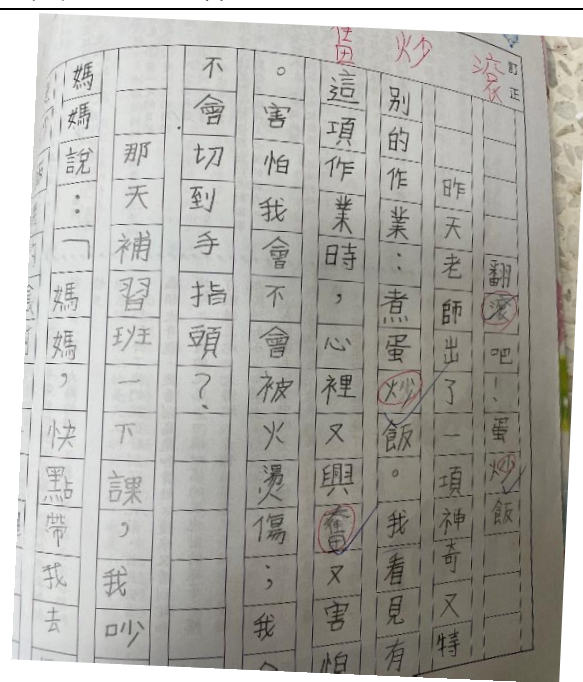 訂正
滾
炒
奮
翻滾吧！蛋炒飯
昨天老師出了一項神奇又特
別的作業：煮蛋炒飯。我看見有
這項作業時，心裡又興奮又害怕
。害怕我會不會被火燙傷；我
不會切到手指頭？
那天補習班一下課，我吵
媽媽說：「媽媽，快點帶我去